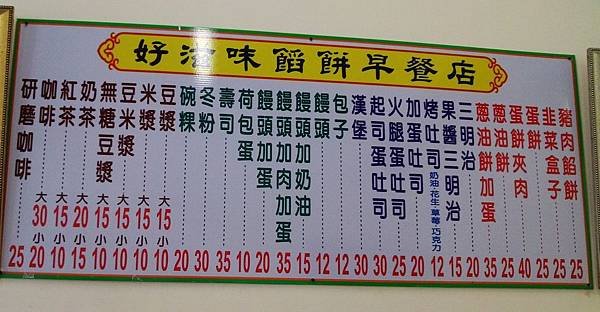 好滋味餡餅早餐店
豬肉餡餅 25
韭菜盒子 25
蛋餅 25
蛋餅夾肉 40
蔥油餅 25
蔥油餅加蛋 35
三明治 20
果醬三明治 15
烤吐司 奶油·花生·草莓·巧克力 12
加蛋吐司 20
火腿蛋吐司 25
起司蛋吐司 30
漢堡 30
包子 12
饅頭 12
饅頭加奶油 15
饅頭加肉加蛋 35
饅頭加蛋 20
荷包蛋 10
壽司 35
冬粉 30
碗粿 20
豆漿 大 15 小 10
米漿 大 15 小 10
豆米漿 大 15 小 10
無糖豆漿 大 15 小 10
奶茶 大 20 小 15
紅茶 大 15 小 10
咖啡 大 30 小 20
研磨咖啡 25